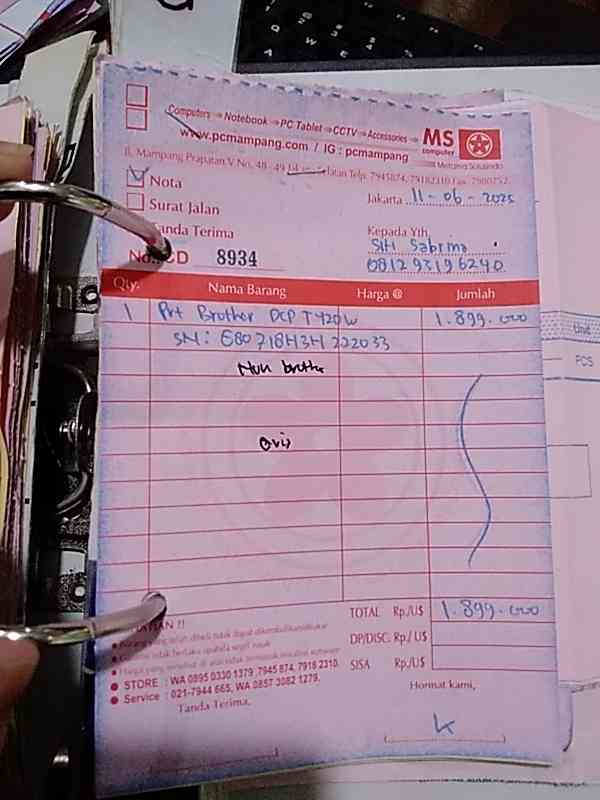 Computers ⇒ Notebook ⇒ PC Tablet ⇒ CCTV ⇒ Accessories ⇒
MS
computer
www.pcmampang.com / IG : pcmampang
Metama Solusindo
Jl. Mampang Prapatan V No. 48 - 49 Selatan Telp. 7945874, 79182310 Fax. 7900752
Nota
Jakarta 11-06-2025
Surat Jalan
Tanda Terima
Kepada Yth,
Siti Sabrina
No. CD 8934
081293196240
Qty. Nama Barang Harga @ Jumlah
1 Prt Brother DCP T420W 1.899.000
SN: E80718H3H222033
Mun brother
TOTAL Rp./U$ 1.899.000
DP/DISC. Rp./ U$
SISA Rp./U$
Barang yang telah dibeli tidak dapat dikembalikan/ditukar
Garansi tidak berlaku apabila segel rusak
Harga yang tersebut di atas tidak termasuk instalasi software
STORE : WA 0895 0330 1379 ,7945 874, 7918 2310.
Service : 021-7944 665, WA 0857 3082 1279.
Tanda Terima,
Hormat kami,
Unit
PCS